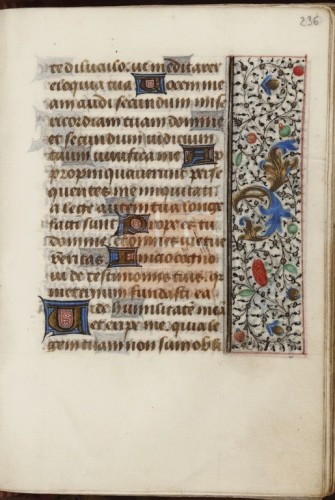 236
te diluculo. ut meditarer
eloquia tua Vocem me
am audi secundum mise
ricordiam tuam domine
et secundum iudicium
tuum vivifica me Ap
propinquaverunt perse
quentes me iniquitati
a lege autem tua longe
facti sunt Prope es tu
domine et omnes vie tue
veritas Initio cogno
vi de testimoniis tuis. qr
in eternum fundasti ea
Vide humilitatē mea
et eripe me. quia le
gem tuam non sum obli